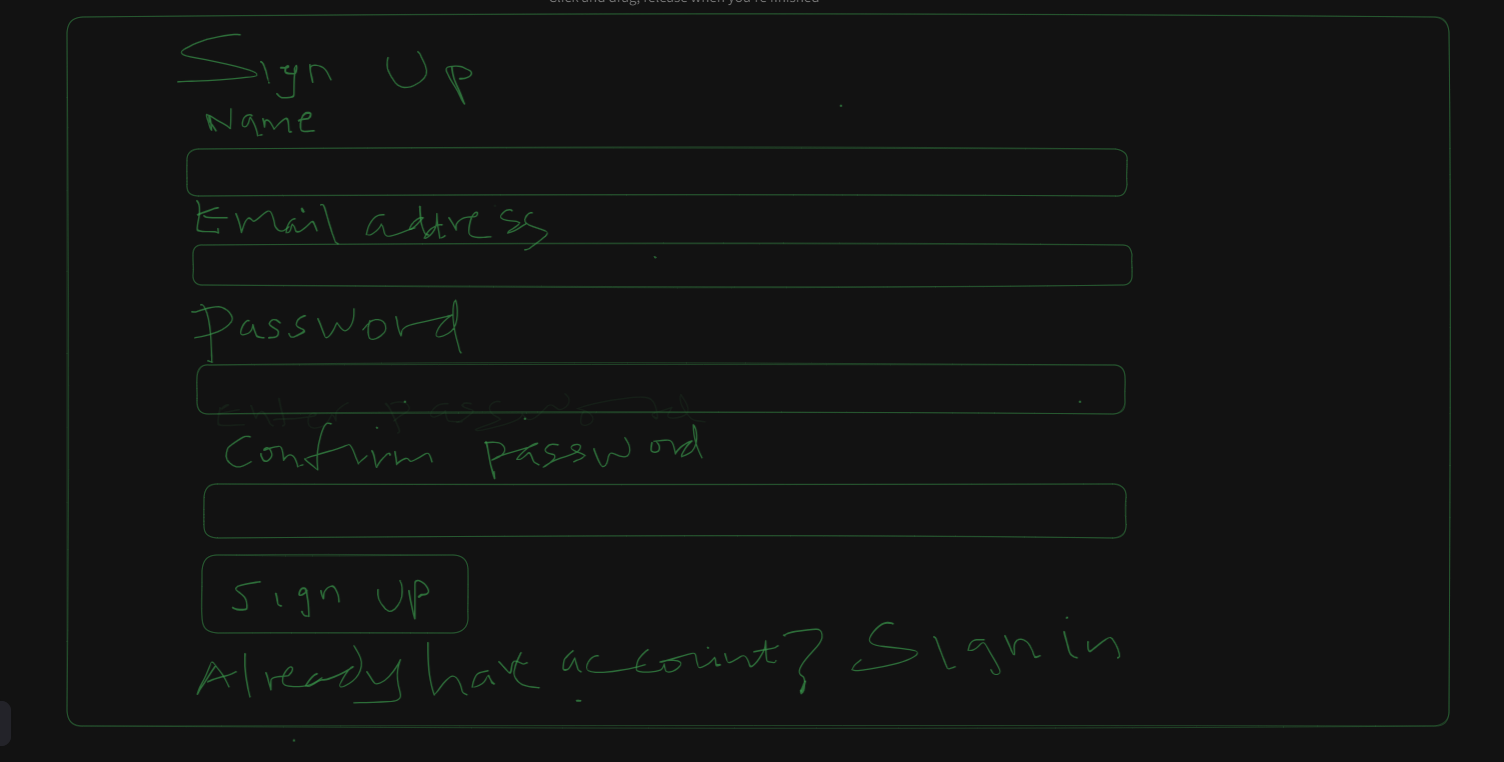 Click and drag, release when you're finished
Sign Up
Name
Email address
Password
Enter password
Confirm password
Sign UP
Already have account? Sign in